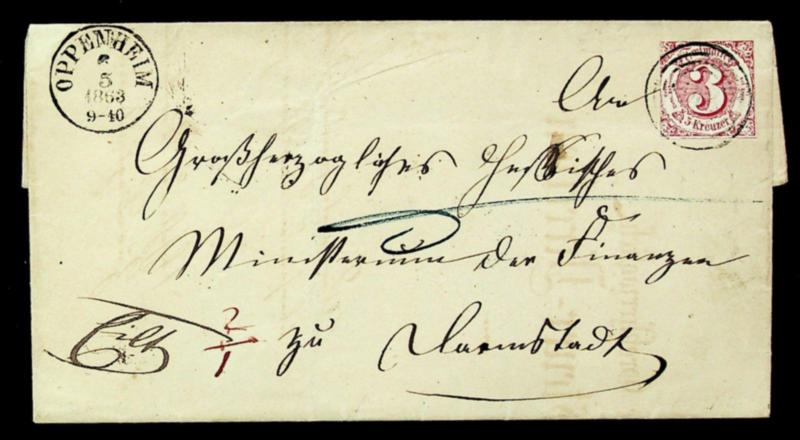 OPPENHEIM
5
1863
9-10
3
3 Kreuzer
An
Großherzogliches Hessisches
Ministerium der Finanzen
Eilt 2/1 zu Darmstadt